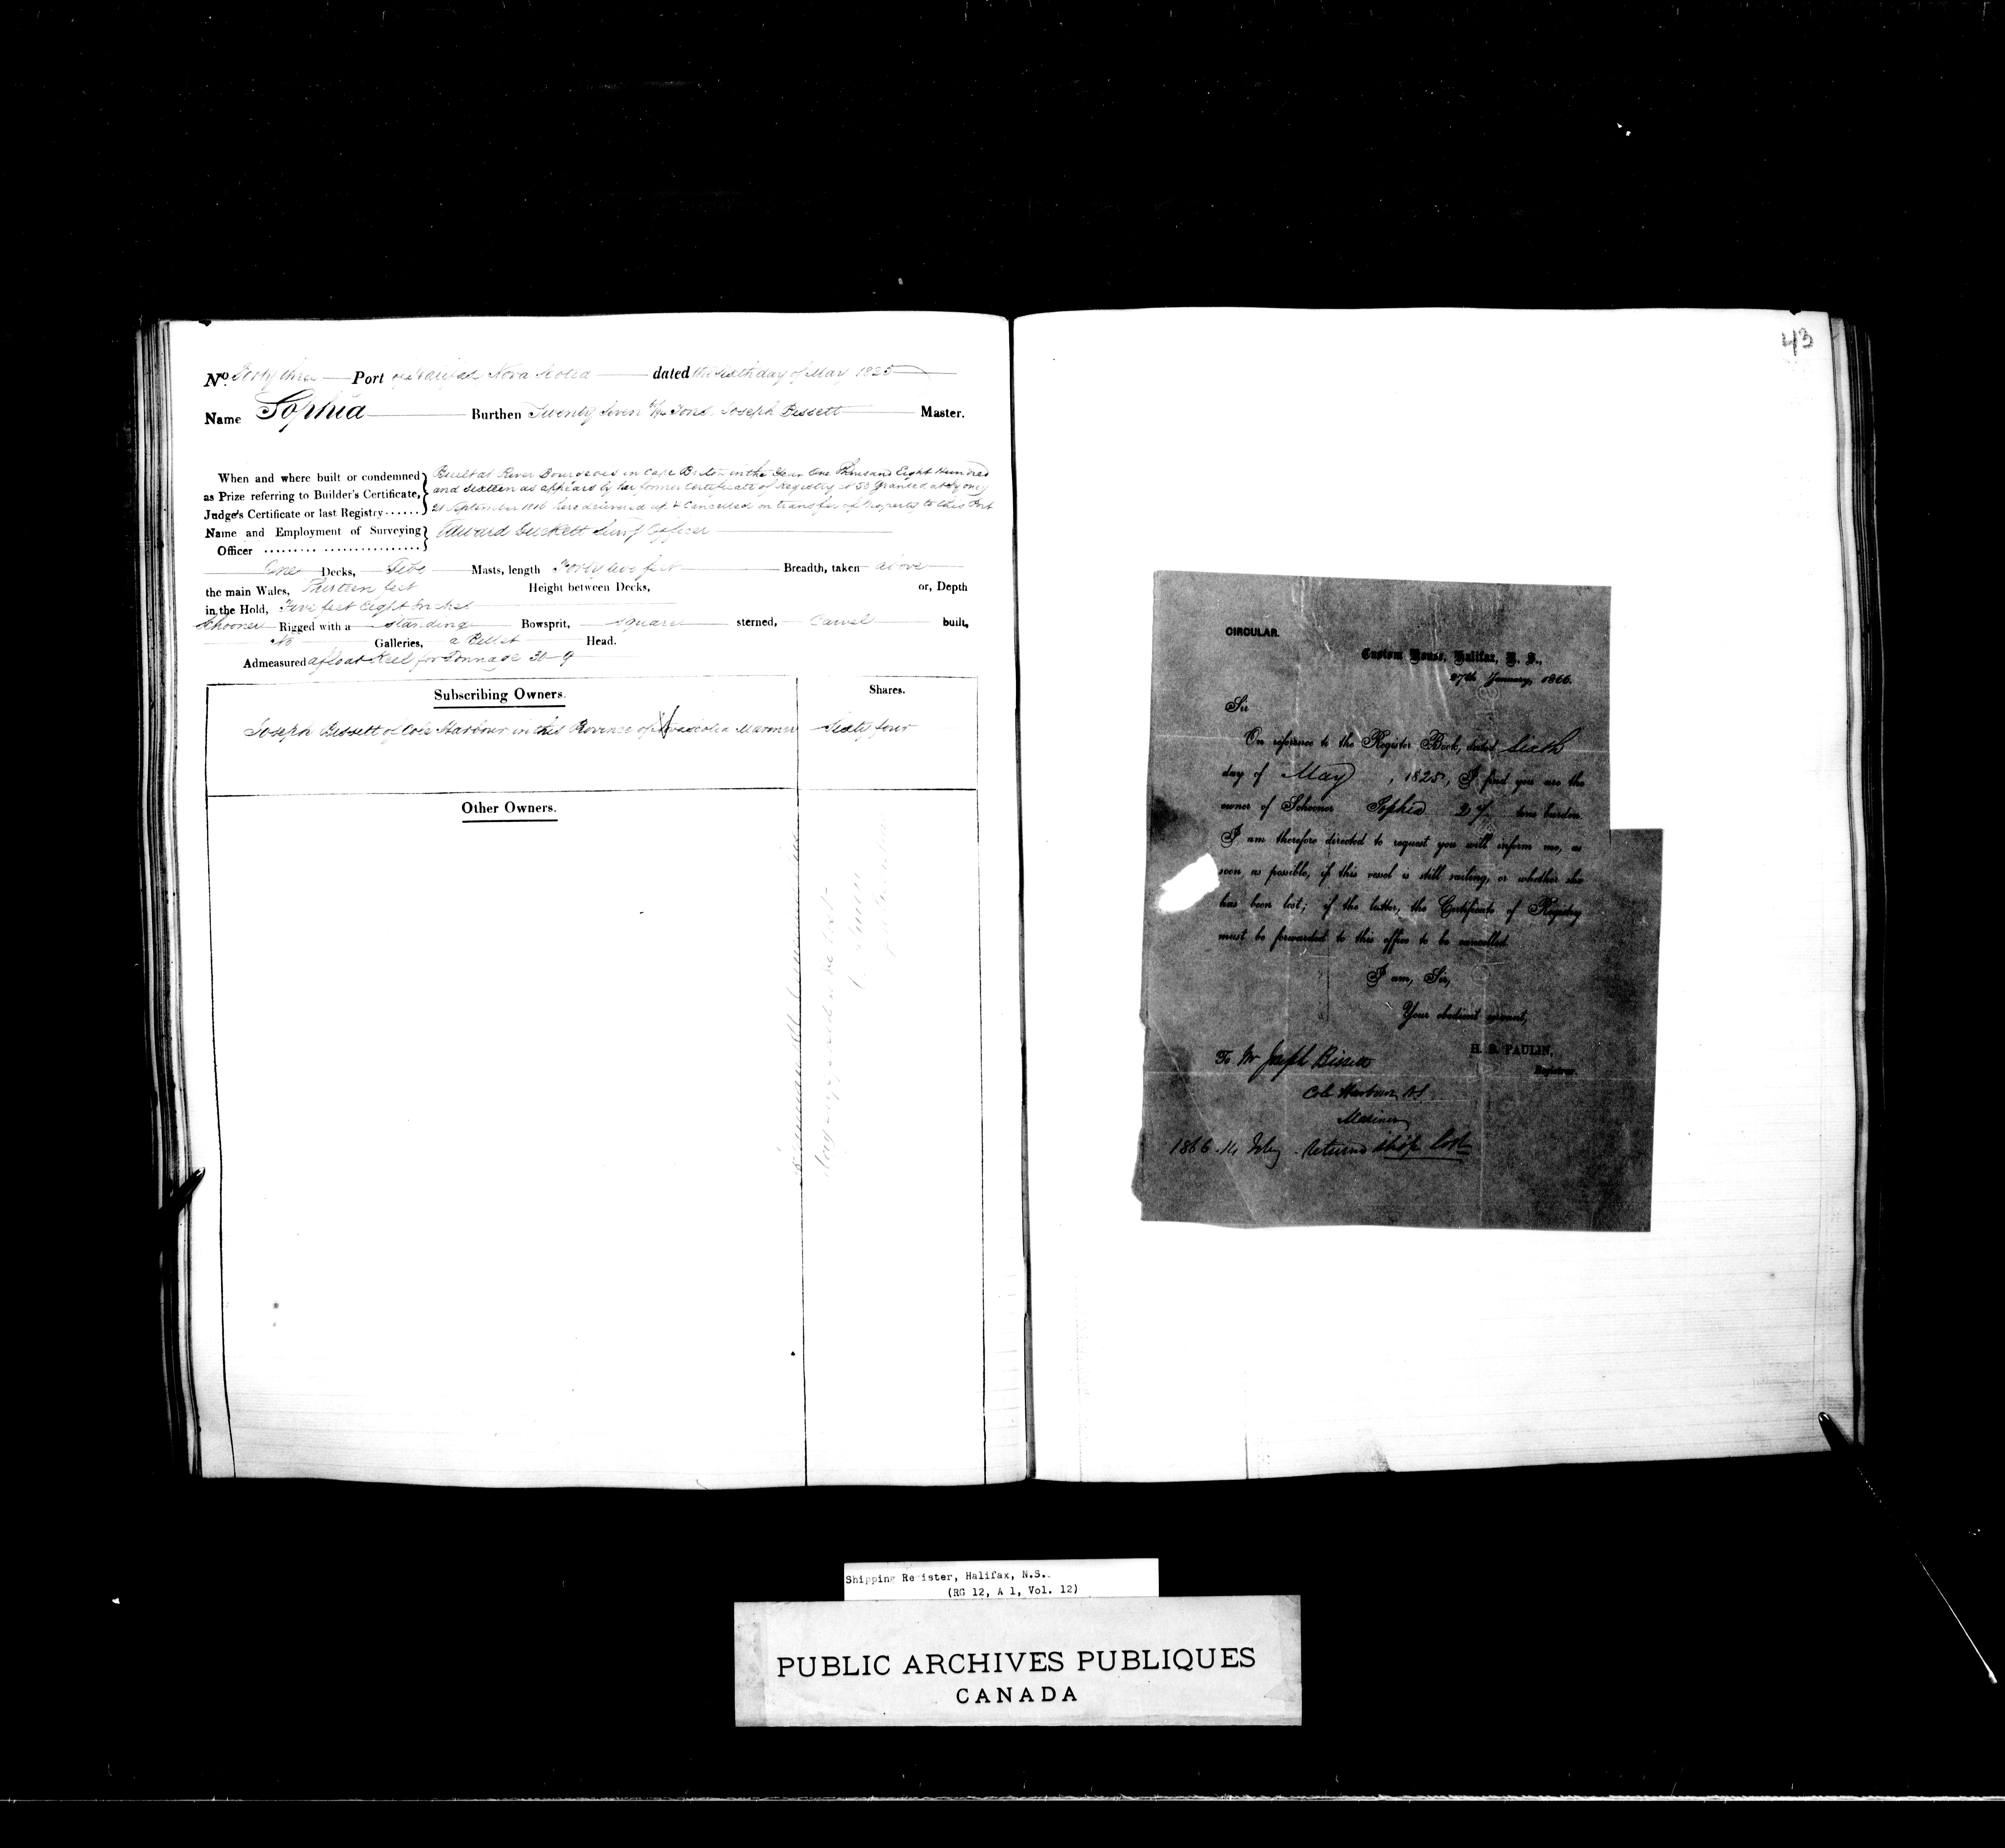 No. Forty three Port of Halifax Nova Scotia dated the Sixth day of May 1825
Name Sophia Burthen Twenty Seven Tons Joseph Bissett Master.
When and where built or condemned Built at River Bourgeois in Cape Breton in the Year One Thousand Eight Hundred
as Prize referring to Builder's Certificate, and Sixteen as appears by her former Certificate of Registry No 53 Granted at Sydney
Judge's Certificate or last Registry ...... 21 September 1816 here delivered up & Cancelled on transfer of Property to this Port
Name and Employment of Surveying Edward Duckett Surv Officer
Officer
One Decks, Two Masts, length Forty two feet Breadth, taken above
the main Wales, Thirteen feet Height between Decks, or, Depth
in the Hold, Five feet Eight Inches
Schooner Rigged with a standing Bowsprit, square sterned, Carvel built,
No Galleries, a Billet Head.
Admeasured afloat Keel for Tonnage 30-9
Subscribing Owners. Shares.
Joseph Bissett of Cole Harbour in this Province of Novascotia Mariner Sixty four
Other Owners.
43
CIRCULAR.
Custom House, Halifax, N. S.,
27th January, 1866.
Sir
On reference to the Register Book, dated Sixth
day of May, 1825, I find you are the
owner of Schooner Sophia 27 tons burden.
I am therefore directed to request you will inform me, as
soon as possible, if this vessel is still sailing, or whether she
has been lost; if the latter, the Certificate of Registry
must be forwarded to this office to be cancelled.
I am, Sir,
Your obedient servant,
H. S. PAULIN,
Registrar.
To Mr Joseph Bissett
Cole Harbour NS
Mariner
1866. 14 Feby. Returned ship lost
Shipping Register, Halifax, N.S.
(RG 12, A 1, Vol. 12)
PUBLIC ARCHIVES PUBLIQUES
CANADA